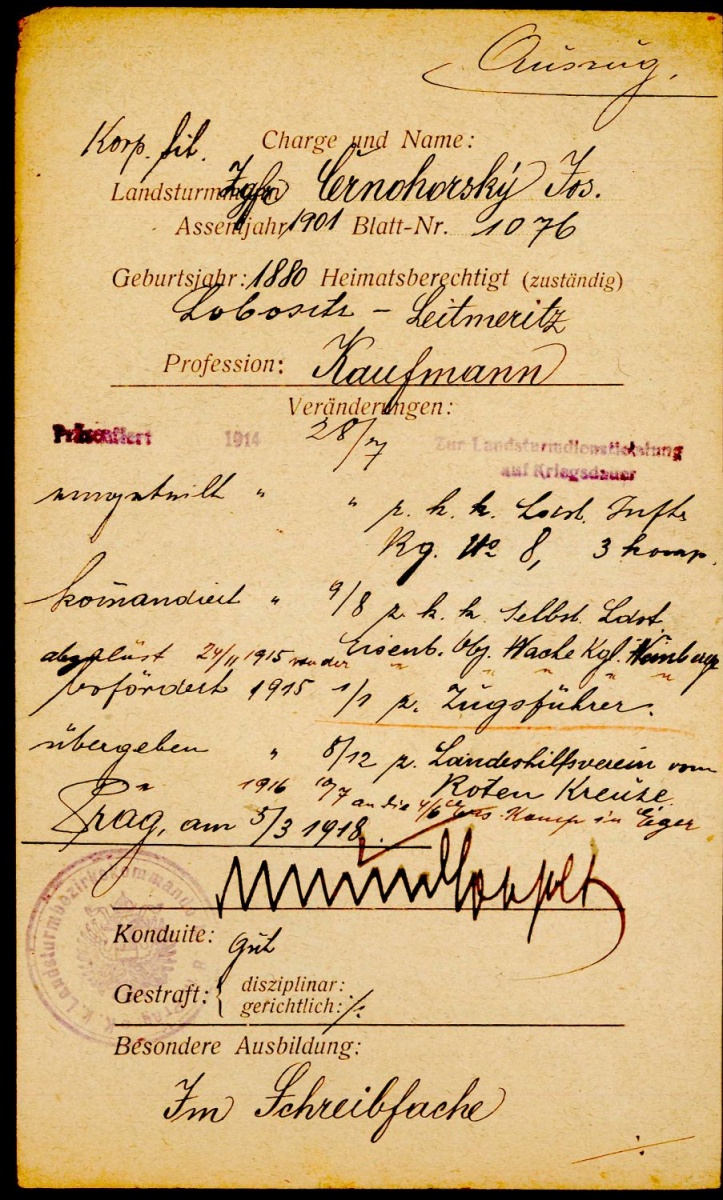 Auszug.
Korp. tit. Charge und Name:
Landsturmmann Zgsf. Černohorský Jos.
Assentjahr 1901 Blatt-Nr. 1076
Geburtsjahr: 1880 Heimatsberechtigt (zuständig)
Lobositz – Leitmeritz
Profession: Kaufmann
Veränderungen:
Präsentiert 1914 28/7 Zur Landsturmdienstleistung
auf Kriegsdauer
eingeteilt " " z. k. k. Ldst. Inft.
Rg. No 8, 3 Komp.
komandiert " 9/8 z. k. k. Selbst. Ldst
Eisenb. Obj. Wache Kgl. Weinberge
abgelöst 24/11 1915 von der " " " " "
befördert 1915 1/1 z. Zugsführer.
übergeben " 8/12 z. Landeshilfsverein vom
Roten Kreuze
" 1916 10/7 an die Komp in Eger
Prag, am 5/3 1918.
Konduite: gut
Gestraft: { disziplinar:
gerichtlich: /.
Besondere Ausbildung:
Im Schreibfache